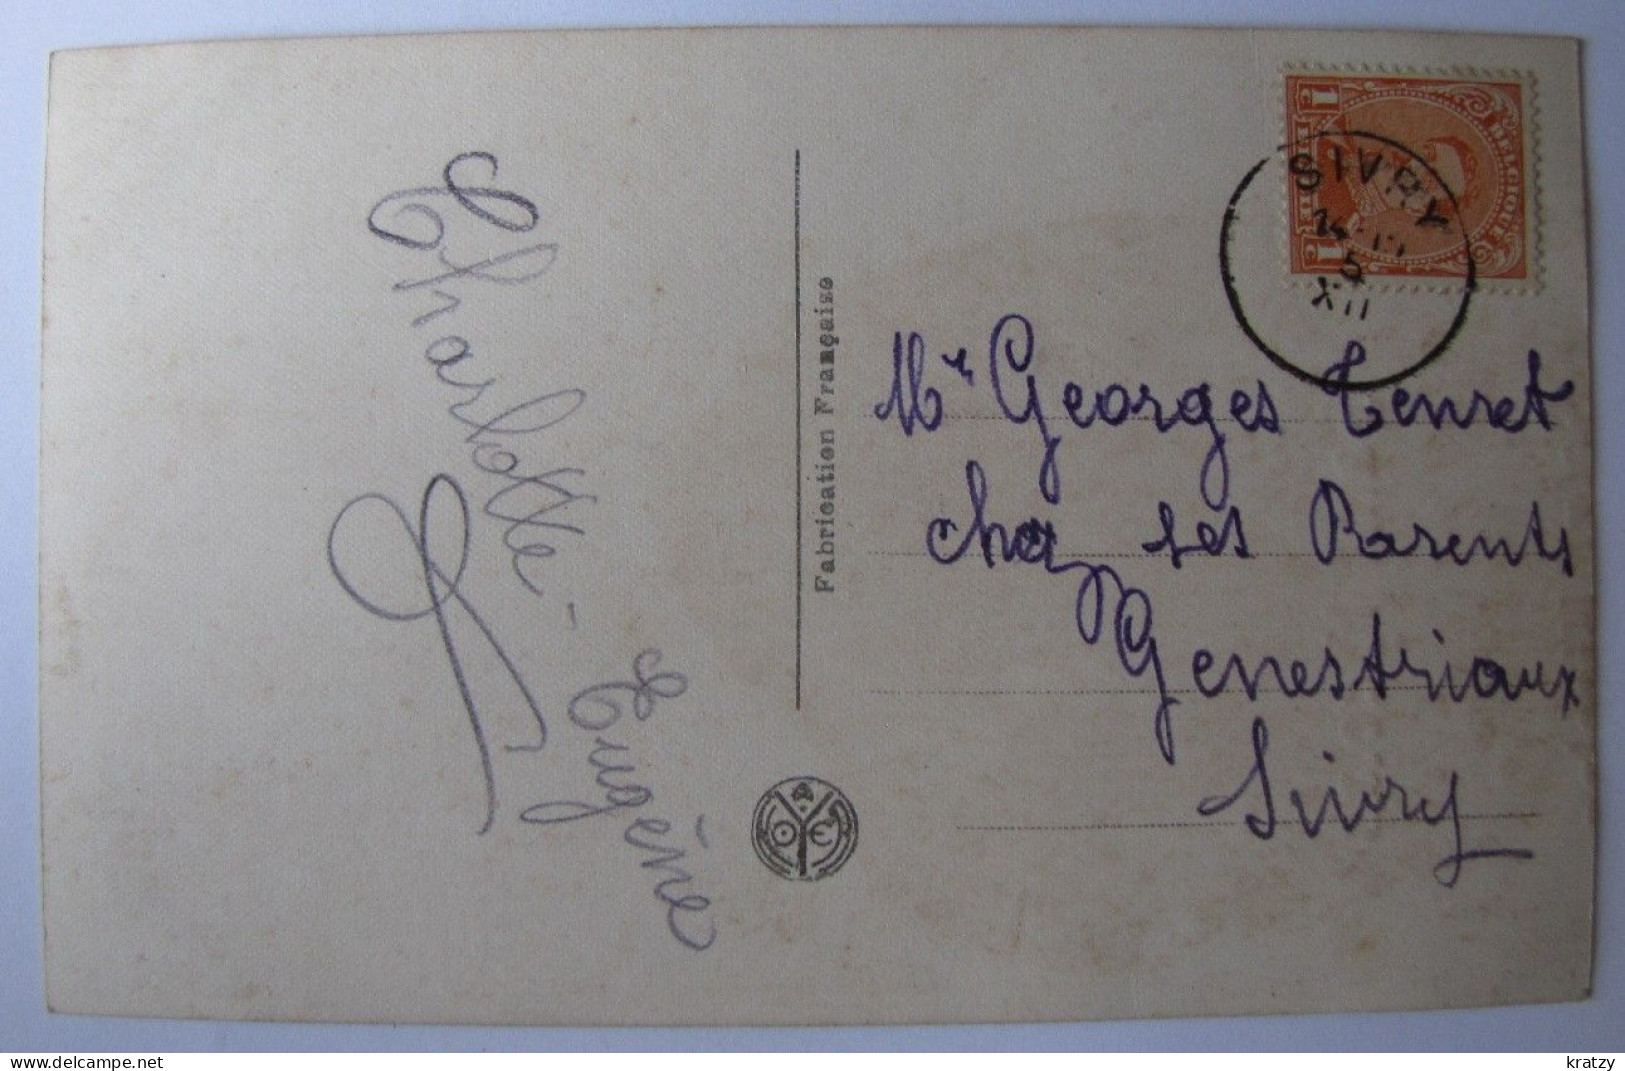 Charlotte - Eugène
Fabrication Française
1c 1c
BELGIQUE
SIVRY
5
XII
Mr Georges Tenret
chez ses Parents
Genestriaux
Sivry
delcampe.net
kratzy